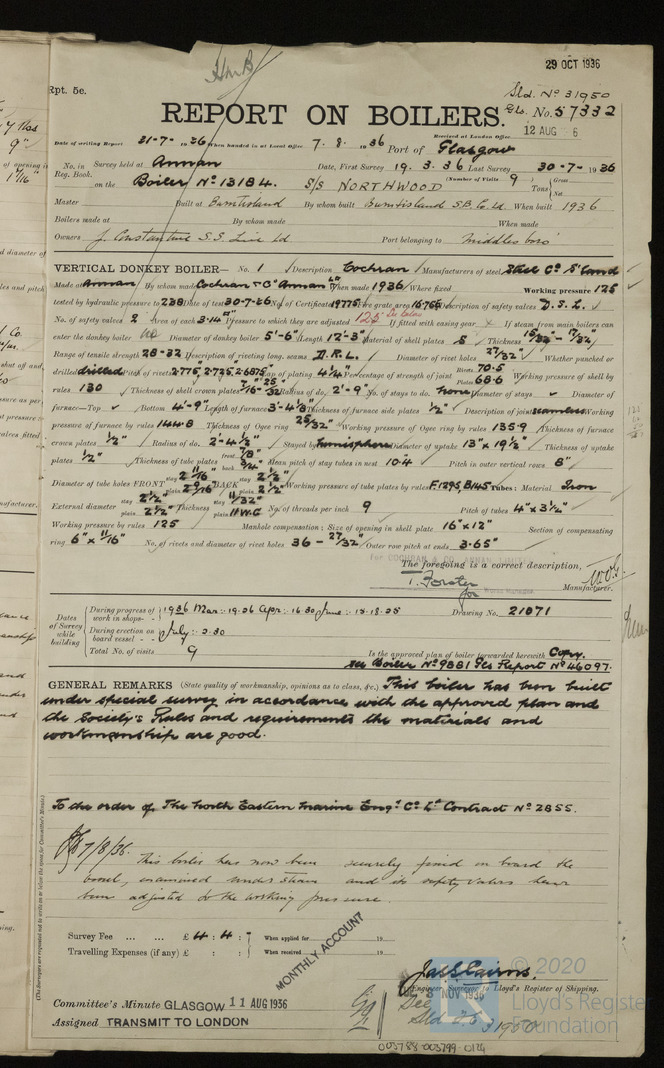 29 OCT 1936
Rpt. 5e.
Sld. No 31950
REPORT ON BOILERS.
Gls. No. 57332
Received at London Office 12 AUG 6
Date of writing Report 31-7-1936 When handed in at Local Office 7. 8. 1936 Port of Glasgow
No. in Survey held at Annan Date, First Survey 19. 3. 36 Last Survey 30-7-1936
Reg. Book.
(Number of Visits 9)
on the Boiler No 13184. S/S NORTHWOOD Tons Gross Net
Master Built at Burntisland By whom built Burntisland S.B. Co. Ld When built 1936
Boilers made at By whom made When made
Owners J. Constantine S.S. Line Ld Port belonging to Middlesboro'
VERTICAL DONKEY BOILER— No. 1 Description Cochran Manufacturers of steel Steel Co. S'land
Made at Annan By whom made Cochran & Co Annan Ld When made 1936 Where fixed Working pressure 125
tested by hydraulic pressure to 238 Date of test 30-7-36 No. of Certificate 19775 Fire grate area 16.765 Description of safety valves D.S.L.
No. of safety valves 2 Area of each 3.14" Pressure to which they are adjusted 125 If fitted with easing gear If steam from main boilers can
enter the donkey boiler No Diameter of donkey boiler 5'-6" Length 12'-3" Material of shell plates S Thickness 15/32" - 17/32"
Range of tensile strength 28-32 Description of riveting long. seams D.R.L. Diameter of rivet holes 27/32" Whether punched or
drilled drilled Pitch of rivets 2.775", 2.725, 2.6875" Lap of plating 4 1/4" Percentage of strength of joint Rivets 70.5 Plates 68.6 Working pressure of shell by
rules 130 Thickness of shell crown plates 7/16" 25/32" Radius of do. 2'-9" No. of stays to do. None Diameter of stays Diameter of
furnace—Top Bottom 4'-9" Length of furnace 3'-4 1/8" Thickness of furnace side plates 1/2" Description of joint seamless Working
pressure of furnace by rules 144.8 Thickness of Ogee ring 25/32" Working pressure of Ogee ring by rules 135.9 Thickness of furnace
crown plates 1/2" Radius of do. 2'-4 1/2" Stayed by hemisphere Diameter of uptake 13" x 19 1/2" Thickness of uptake
plates 1/2" Thickness of tube plates front 7/8" back 3/4" Mean pitch of stay tubes in nest 10.4 Pitch in outer vertical rows 8"
Diameter of tube holes FRONT stay 2 11/16" plain 2 9/16" BACK stay 2 1/2" plain 2 1/2" Working pressure of tube plates by rules F.129.5, B.145 Tubes: Material Iron
External diameter stay 2 1/2" plain 2 1/2" Thickness stay 11/32" plain 11 W.G No. of threads per inch 9 Pitch of tubes 4" x 3 1/2"
Working pressure by rules 125 Manhole compensation: Size of opening in shell plate 16" x 12" Section of compensating
ring 6" x 11/16" No. of rivets and diameter of rivet holes 36 - 27/32" Outer row pitch at ends 3.65"
The foregoing is a correct description,
For COCHRAN & CO. ANNAN, LIMITED
T. Forster
for Manufacturer.
Dates of Survey while building
During progress of work in shops - 1936 Mar: 19.26 Apr: 16.30 June: 15.18.25 Drawing No. 21871
During erection on board vessel - July: 2.30
Total No. of visits 9 Is the approved plan of boiler forwarded herewith Copy.
see Boiler No 9881 Gls Report No 46097.
GENERAL REMARKS (State quality of workmanship, opinions as to class, &c.) This boiler has been built
under special survey in accordance with the approved plan and
the Society's Rules and requirements the materials and
workmanship are good.
To the order of The North Eastern Marine Engg Co Ld Contract No 2855.
7/8/36. This boiler has now been securely fixed on board the
vessel, examined under steam and its safety valves have
been adjusted to the working pressure.
Survey Fee ... ... £ 4 : 4 : When applied for 19
Travelling Expenses (if any) £ : : When received 19
MONTHLY ACCOUNT
Jas S Cairns.
Engineer Surveyor to Lloyd's Register of Shipping.
Committee's Minute GLASGOW 11 AUG 1936
3 NOV 1936
Assigned TRANSMIT TO LONDON
See Sld. 31950
003788-003799-0124
© 2020
Lloyd's Register
Foundation